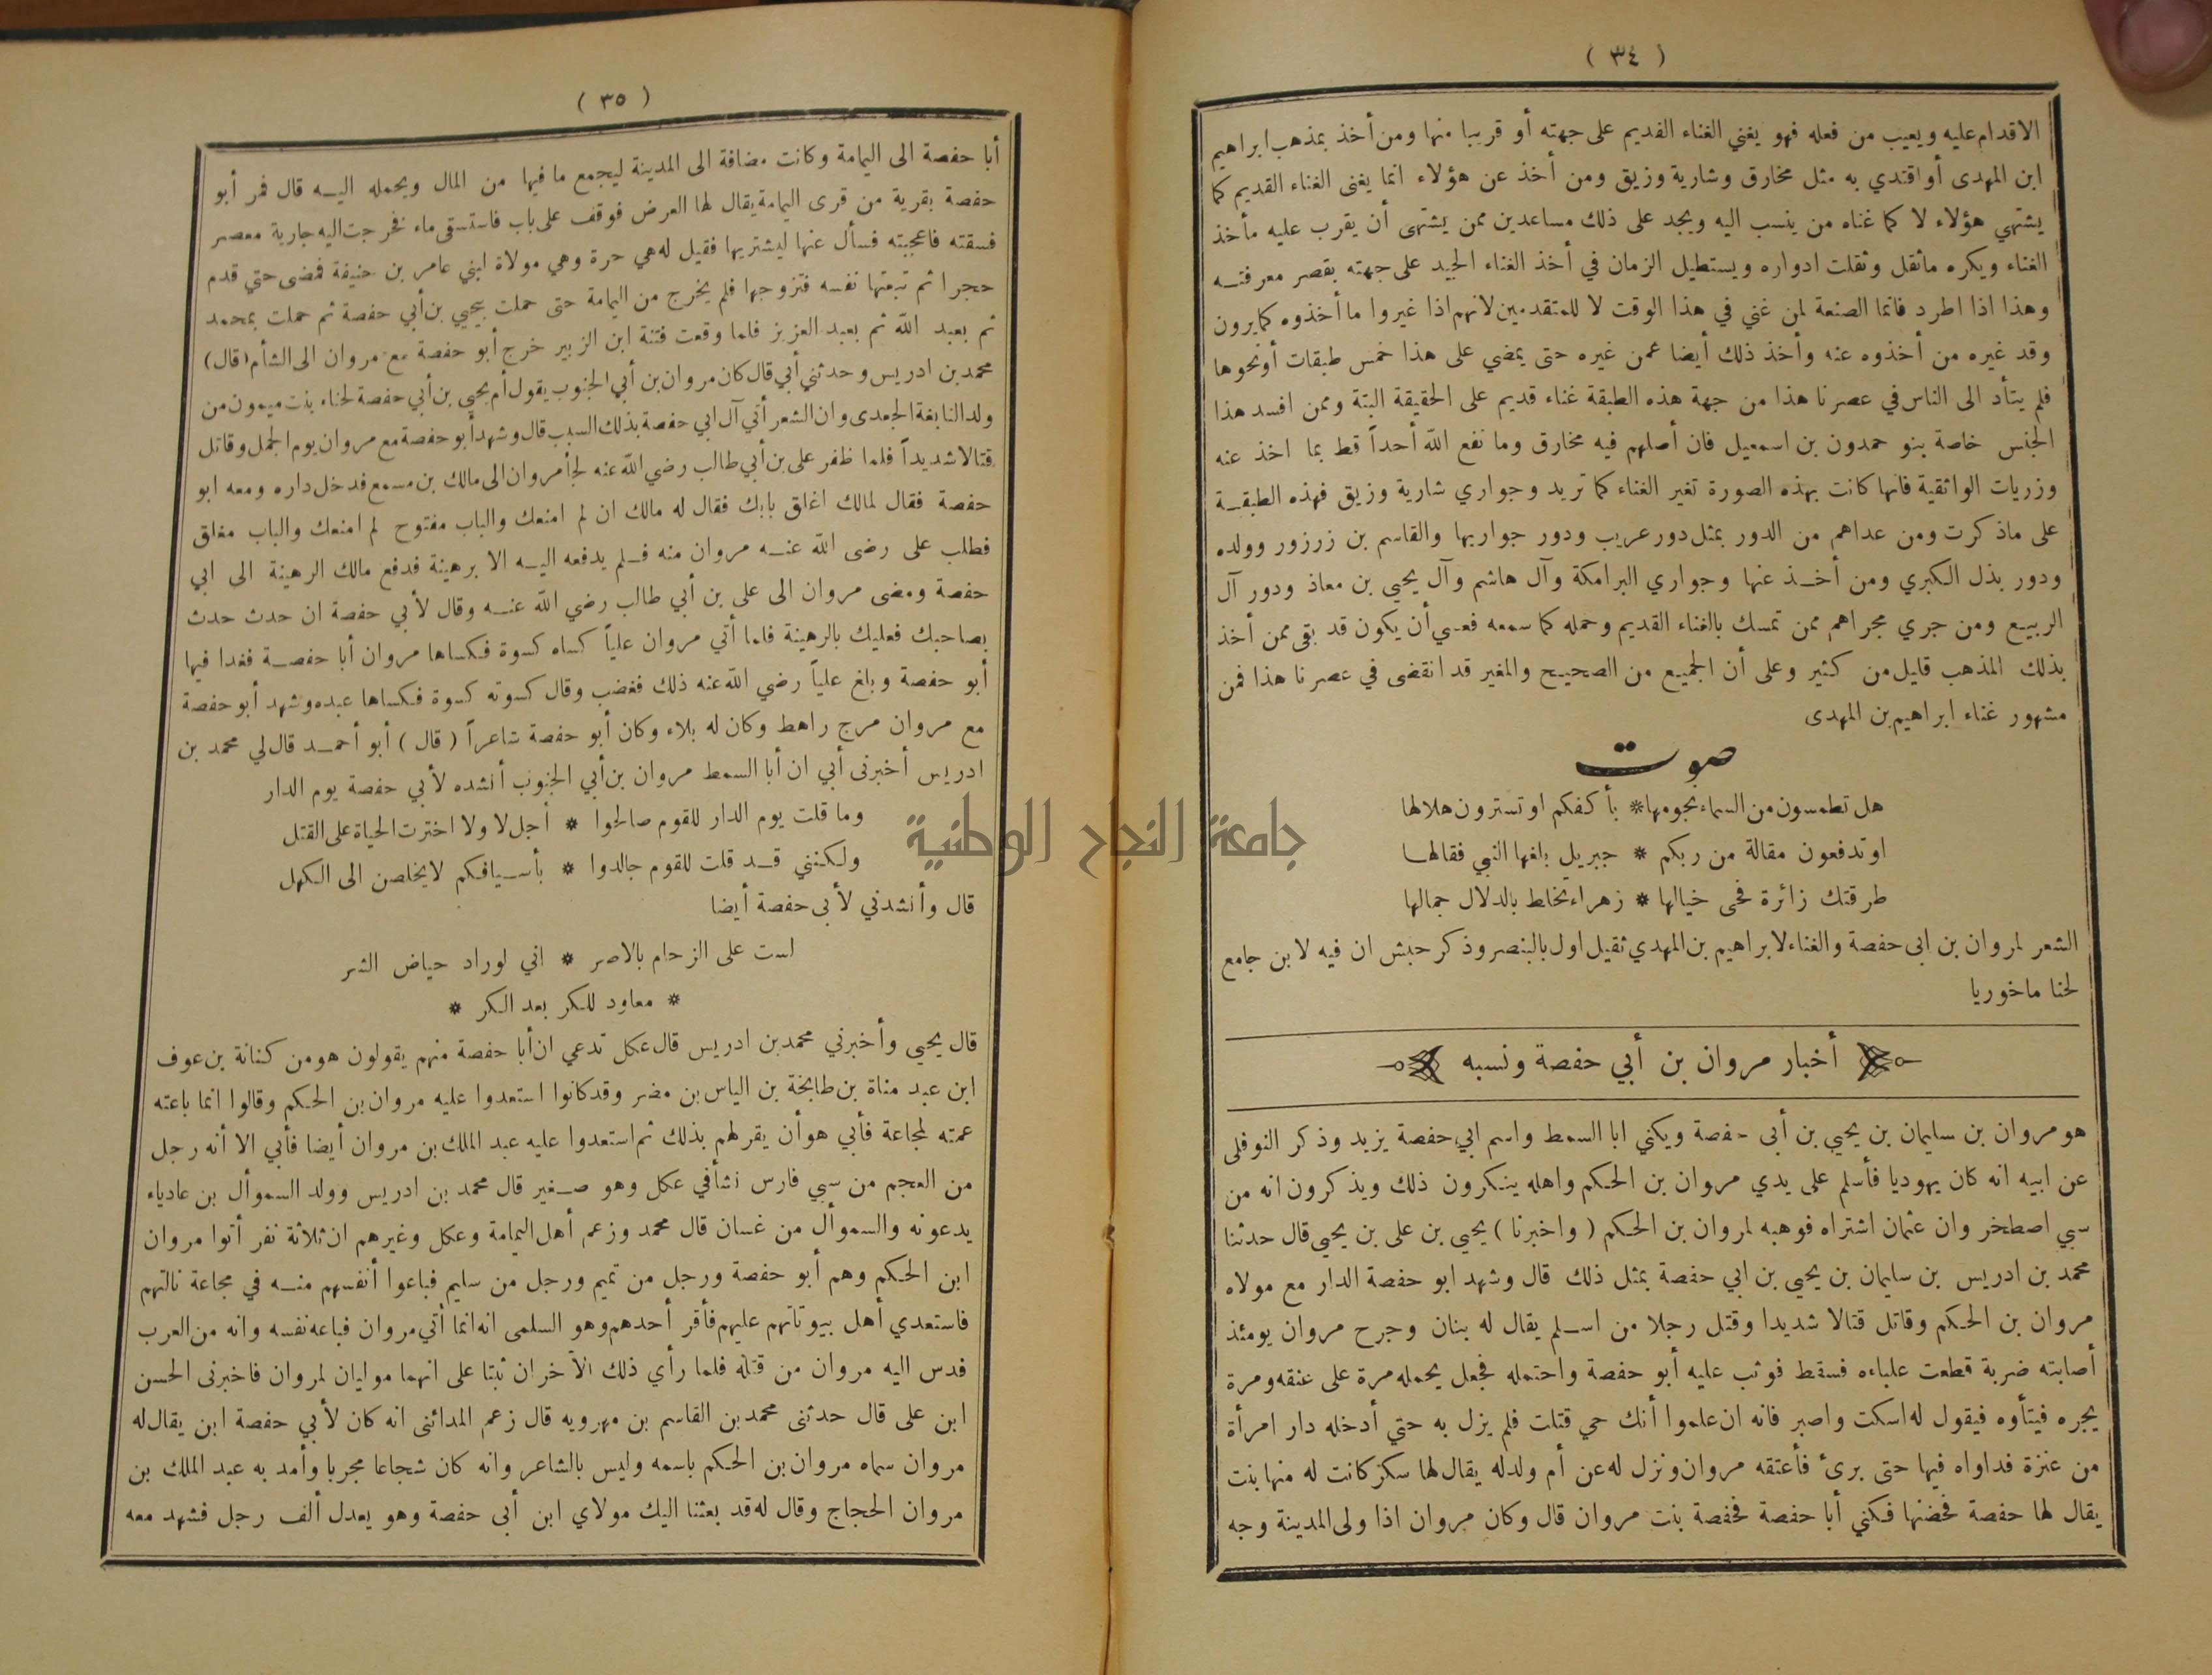 ( ٣٤ )
الاقدام عليه ويعيب من فعله فهو يغني الغناء القديم على جهته أو قريبا منها ومن أخذ بمذهب ابراهيم
ابن المهدى أو اقتدي به مثل مخارق وشارية وزيق ومن أخذ عن هؤلاء انما يغنى الغناء القديم كما
يشتهي هؤلاء لا كما غناه من ينسب اليه ويجد على ذلك مساعدين ممن يشتهى أن يقرب عليه مأخذ
الغناء ويكره ماثقل وثقلت ادواره ويستطيل الزمان في أخذ الغناء الجيد على جهته بقصر معرفته
وهذا اذا اطرد فانما الصنعة لمن غني في هذا الوقت لا للمتقدمين لانهم اذا غيروا ما أخذوه كما يرون
وقد غيره من أخذوه عنه وأخذ ذلك أيضا عمن غيره حتى يمضي على هذا خمس طبقات أو نحوها
فلم يتأد الى الناس في عصرنا هذا من جهة هذه الطبقة غناء قديم على الحقيقة البتة وممن افسد هذا
الجنس خاصة بنو حمدون بن اسمعيل فان أصلهم فيه مخارق وما نفع الله أحداً قط بما اخذ عنه
وزريات الواثقية فانها كانت بهذه الصورة تغير الغناء كما تريد وجواري شارية وزيق فهذه الطبقة
على ماذكرت ومن عداهم من الدور بمثل دور عريب ودور جواريها والقاسم بن زرزور وولده
ودور بذل الكبري ومن أخذ عنها وجواري البرامكة وآل هاشم وآل يحيي بن معاذ ودور آل
الربيع ومن جري مجراهم ممن تمسك بالغناء القديم وحمله كما سمعه فعسي أن يكون قد بقى ممن أخذ
بذلك المذهب قليل من كثير وعلى أن الجميع من الصحيح والمغير قد انقضى في عصرنا هذا فمن
مشهور غناء ابراهيم بن المهدى
صوت
هل تطمسون من السماء نجومها * بأكفكم او تسترون هلالها
او تدفعون مقالة من ربكم * جبريل بلغها النبي فقالها
طرقتك زائرة فحى خيالها * زهراء تخلط بالدلال جمالها
الشعر لمروان بن ابى حفصة والغناء لابراهيم بن المهدي ثقيل اول بالبنصر وذكر حبش ان فيه لابن جامع
لحنا ماخوريا
أخبار مروان بن أبي حفصة ونسبه
هو مروان بن سليمان بن يحيي بن أبى حفصة ويكني ابا السمط واسم ابي حفصة يزيد وذكر النوفلى
عن ابيه انه كان يهوديا فأسلم على يدي مروان بن الحكم واهله ينكرون ذلك ويذكرون انه من
سبي اصطخر وان عثمان اشتراه فوهبه لمروان بن الحكم ( واخبرنا ) يحيي بن على بن يحيي قال حدثنا
محمد بن ادريس بن سليمان بن يحيى بن ابي حفصة بمثل ذلك قال وشهد ابو حفصة الدار مع مولاه
مروان بن الحكم وقاتل قتالا شديدا وقتل رجلا من اسلم يقال له بنان وجرح مروان يومئذ
أصابته ضربة قطعت علباءه فسقط فوثب عليه أبو حفصة واحتمله فجعل يحمله مرة على عنقه ومرة
يجره فيتأوه فيقول له اسكت واصبر فانه ان علموا أنك حي قتلت فلم يزل به حتي أدخله دار امرأة
من عنزة فداواه فيها حتى برئ فأعتقه مروان ونزل له عن أم ولدله يقال لها سكر كانت له منها بنت
يقال لها حفصة فحضنها فكني أبا حفصة فحفصة بنت مروان قال وكان مروان اذا ولى المدينة وجه
( ٣٥ )
أبا حفصة الى اليمامة وكانت مضافة الى المدينة ليجمع ما فيها من المال ويحمله اليه قال فمر أبو
حفصة بقرية من قرى اليمامة يقال لها العرض فوقف على باب فاستسقى ماء فخرجت اليه جارية معصر
فسقته فاعجبته فسأل عنها ليشتريها فقيل له هي حرة وهي مولاة لبني عامر بن حنيفة فمضى حتي قدم
حجرا ثم تبعتها نفسه فتزوجها فلم يخرج من اليمامة حتى حملت بيحيي بن أبي حفصة ثم حملت بمحمد
ثم بعبد الله ثم بعبد العزيز فلما وقعت فتنة ابن الزبير خرج أبو حفصة مع مروان الى الشأم (قال)
محمد بن ادريس وحدثني أبي قال كان مروان بن أبي الجنوب يقول أم يحيى بن أبي حفصة لحناء بنت ميمون من
ولد النابغة الجعدى وان الشعر أتي آل ابي حفصة بذلك السبب قال وشهد أبو حفصة مع مروان يوم الجمل وقاتل
قتالا شديداً فلما ظفر على بن أبي طالب رضي الله عنه لجأ مروان الى مالك بن مسمع فدخل داره ومعه ابو
حفصة فقال لمالك اغلق بابك فقال له مالك ان لم امنعك والباب مفتوح لم امنعك والباب مغلق
فطلب على رضى الله عنه مروان منه فلم يدفعه اليه الا برهينة فدفع مالك الرهينة الى ابي
حفصة ومضى مروان الى على بن أبي طالب رضي الله عنه وقال لأبي حفصة ان حدث حدث
بصاحبك فعليك بالرهينة فلما أتي مروان علياً كساه كسوة فكساها مروان أبا حفصة فغدا فيها
أبو حفصة وبلغ علياً رضي الله عنه ذلك فغضب وقال كسوته كسوة فكساها عبده وشهد أبو حفصة
مع مروان مرج راهط وكان له بلاء وكان أبو حفصة شاعراً ( قال ) أبو أحمد قال لي محمد بن
ادريس أخبرنى أبي ان أبا السمط مروان بن أبي الجنوب أنشده لأبي حفصة يوم الدار
وما قلت يوم الدار للقوم صالحوا * أجل لا ولا اخترت الحياة على القتل
ولكنني قد قلت للقوم جالدوا * بأسيافكم لا يخلصن الى الكهل
قال وأنشدني لأبى حفصة أيضا
لست على الزحام بالاصر * اني لوراد حياض الشر
* معاود للكر بعد الكر *
قال يحيي وأخبرني محمد بن ادريس قال عكل تدعي ان أبا حفصة منهم يقولون هو من كنانة بن عوف
ابن عبد مناة بن طابخة بن الياس بن مضر وقد كانوا استعدوا عليه مروان بن الحكم وقالوا انما باعته
عمته لمجاعة فأبي هو أن يقر لهم بذلك ثم استعدوا عليه عبد الملك بن مروان أيضا فأبي الا أنه رجل
من العجم من سبي فارس نشأ في عكل وهو صغير قال محمد بن ادريس وولد السموأل بن عادياء
يدعونه والسموأل من غسان قال محمد وزعم أهل اليمامة وعكل وغيرهم ان ثلاثة نفر أتوا مروان
ابن الحكم وهم أبو حفصة ورجل من تميم ورجل من سليم فباعوا أنفسهم منه في مجاعة نالتهم
فاستعدي أهل بيوتاتهم عليهم فأقر أحدهم وهو السلمى انه انما أتي مروان فباعه نفسه وانه من العرب
فدس اليه مروان من قتله فلما رأي ذلك الآخران ثبتا على انهما موليان لمروان فاخبرنى الحسن
ابن على قال حدثنى محمد بن القاسم بن مهرويه قال زعم المدائنى انه كان لأبي حفصة ابن يقال له
مروان سماه مروان بن الحكم باسمه وليس بالشاعر وانه كان شجاعا مجربا وأمد به عبد الملك بن
مروان الحجاج وقال له قد بعثنا اليك مولاي ابن أبى حفصة وهو يعدل ألف رجل فشهد معه
جامعة النجاح الوطنية